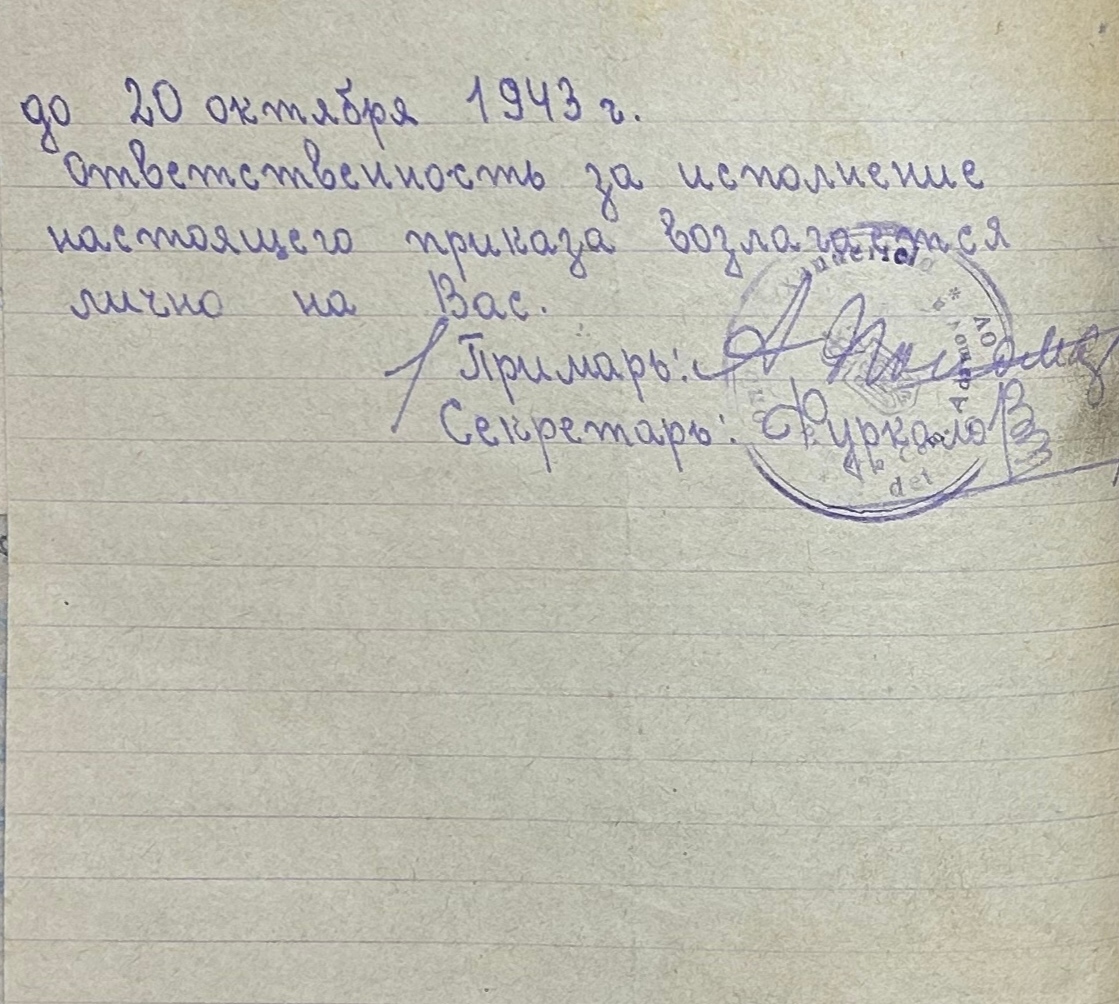 до 20 октября 1943 г.
Ответственность за исполнение
настоящего приказа возлагается
лично на Вас.
Примарь:
Секретарь: Фуркало
det